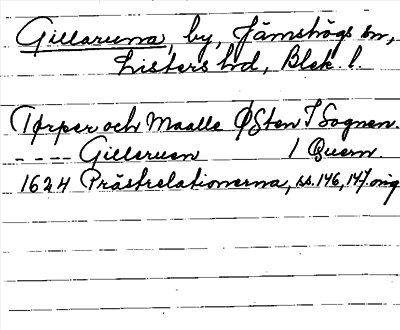 Gillaruna, by, Jämshögs sn,
Listers hd, Blek. l.
Torper och Maalle Østen I Sognen.
- - - - Gilleruen 1 Quern.
1624 Prästrelationerna, ss. 146, 147. orig